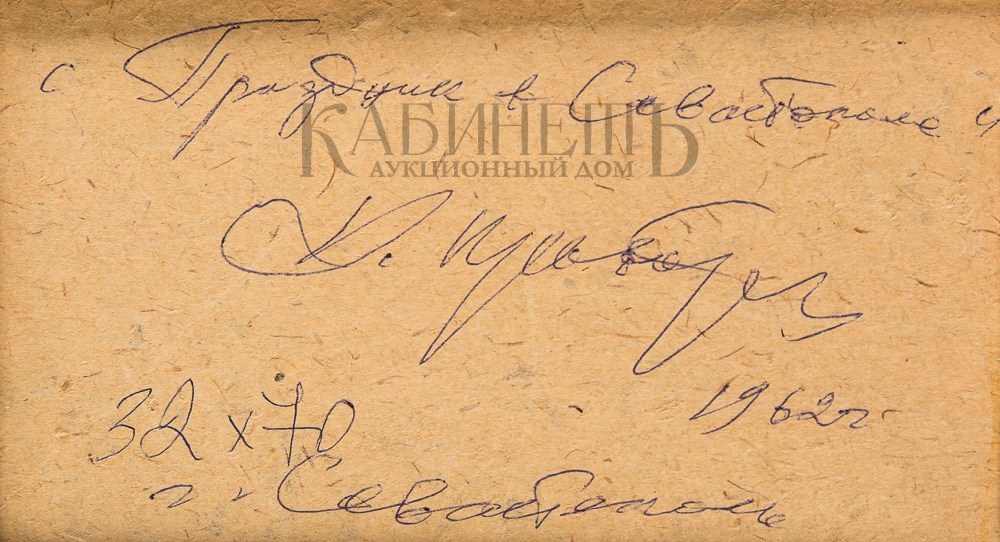 с Праздник в Севастополе"
КАБИНЕТЪ
АУКЦИОННЫЙ ДОМ
К.
1962 г
32 х 70
г. Севастополь